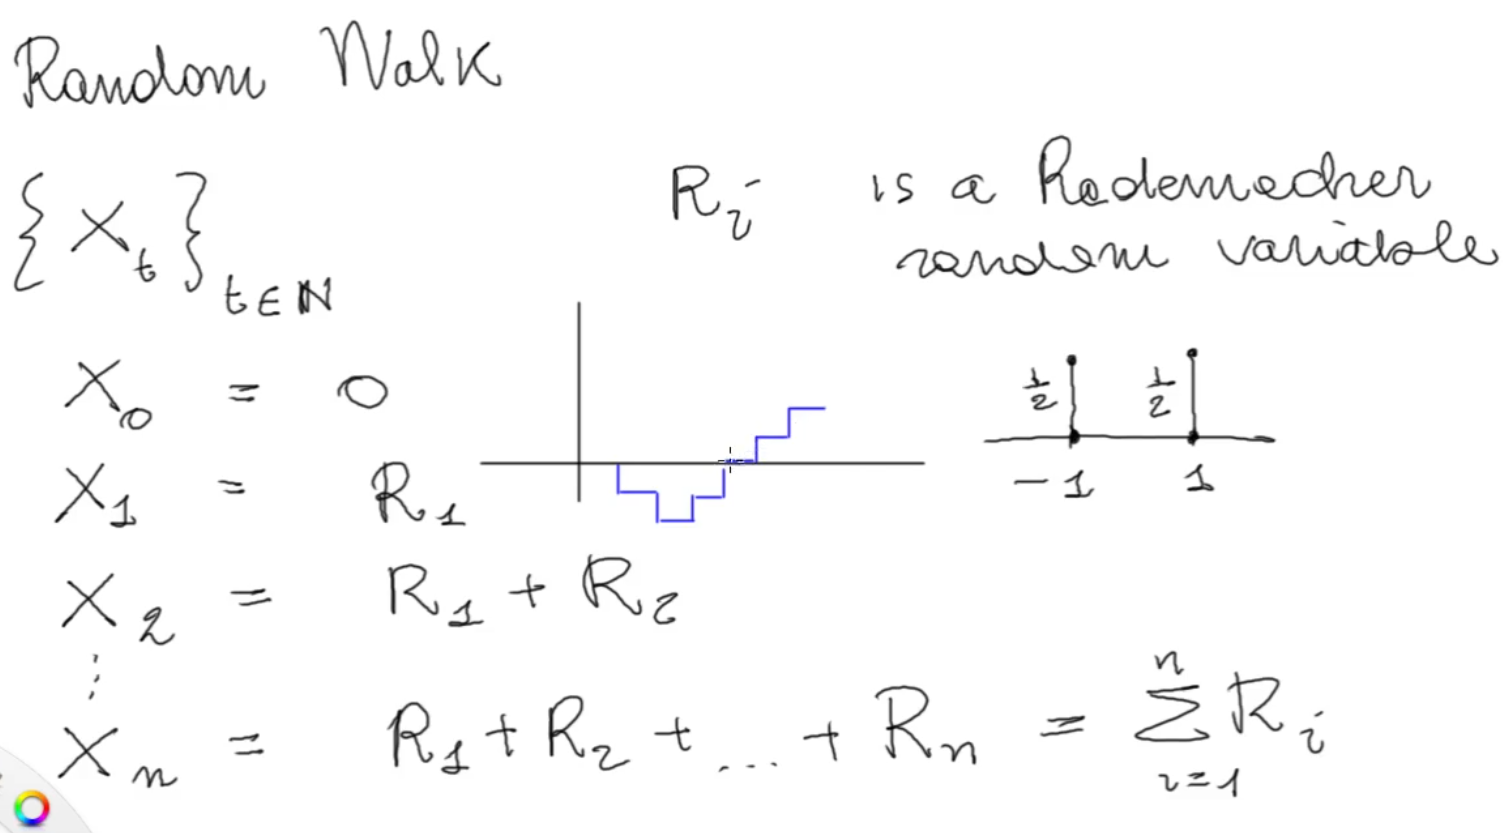 Random Walk
{X_t}_{t∈ℕ}
R_i is a Rademacher
random variable
X_0 = 0
1/2 1/2
-1 1
X_1 = R_1
X_2 = R_1 + R_2
⋮
X_n = R_1 + R_2 + ... + R_n = ∑_{i=1}^{n} R_i